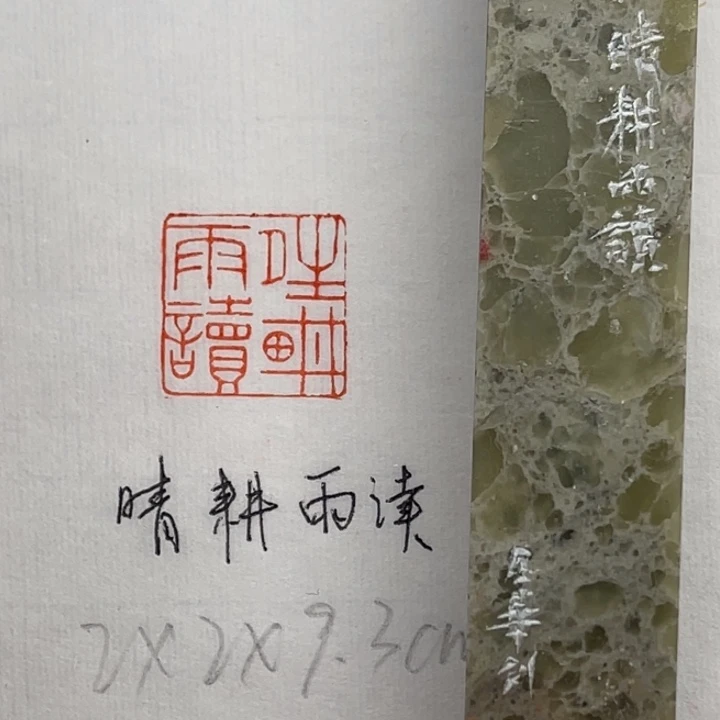 夝畊雨讀
晴耕雨读
2X2X9.3cm
晴耕雨讀
華刻